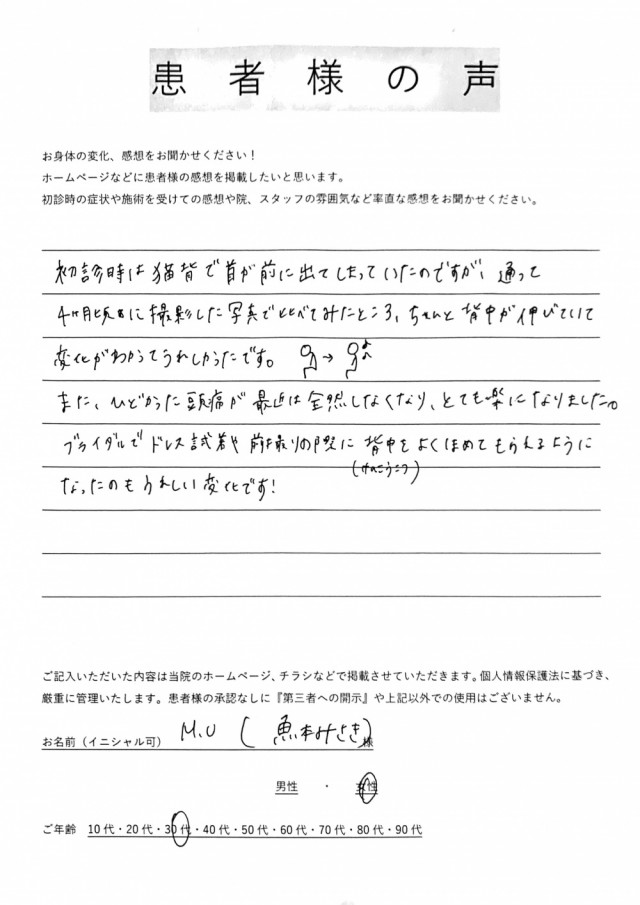 患者様の声
お身体の変化、感想をお聞かせください！
ホームページなどに患者様の感想を掲載したいと思います。
初診時の症状や施術を受けての感想や院、スタッフの雰囲気など率直な感想をお聞かせください。
初診時は猫背で首が前に出てしまっていたのですが、通って
4ヶ月頃に撮影した写真で比べてみたところ、ちゃんと背中が伸びていて
変化がわかってうれしかったです。
また、ひどかった頭痛が最近は全然しなくなり、とても楽になりました。
ブライダルでドレス試着や前撮りの際に背中をよくほめてもらえるように
(けんこうこつ)
なったのもうれしい変化です！
ご記入いただいた内容は当院のホームページ、チラシなどで掲載させていただきます。個人情報保護法に基づき、
厳重に管理いたします。患者様の承認なしに『第三者への開示』や上記以外での使用はございません。
お名前（イニシャル可） M.U (魚本みさき) 様
男性 ・ 女性
ご年齢 10代・20代・30代・40代・50代・60代・70代・80代・90代